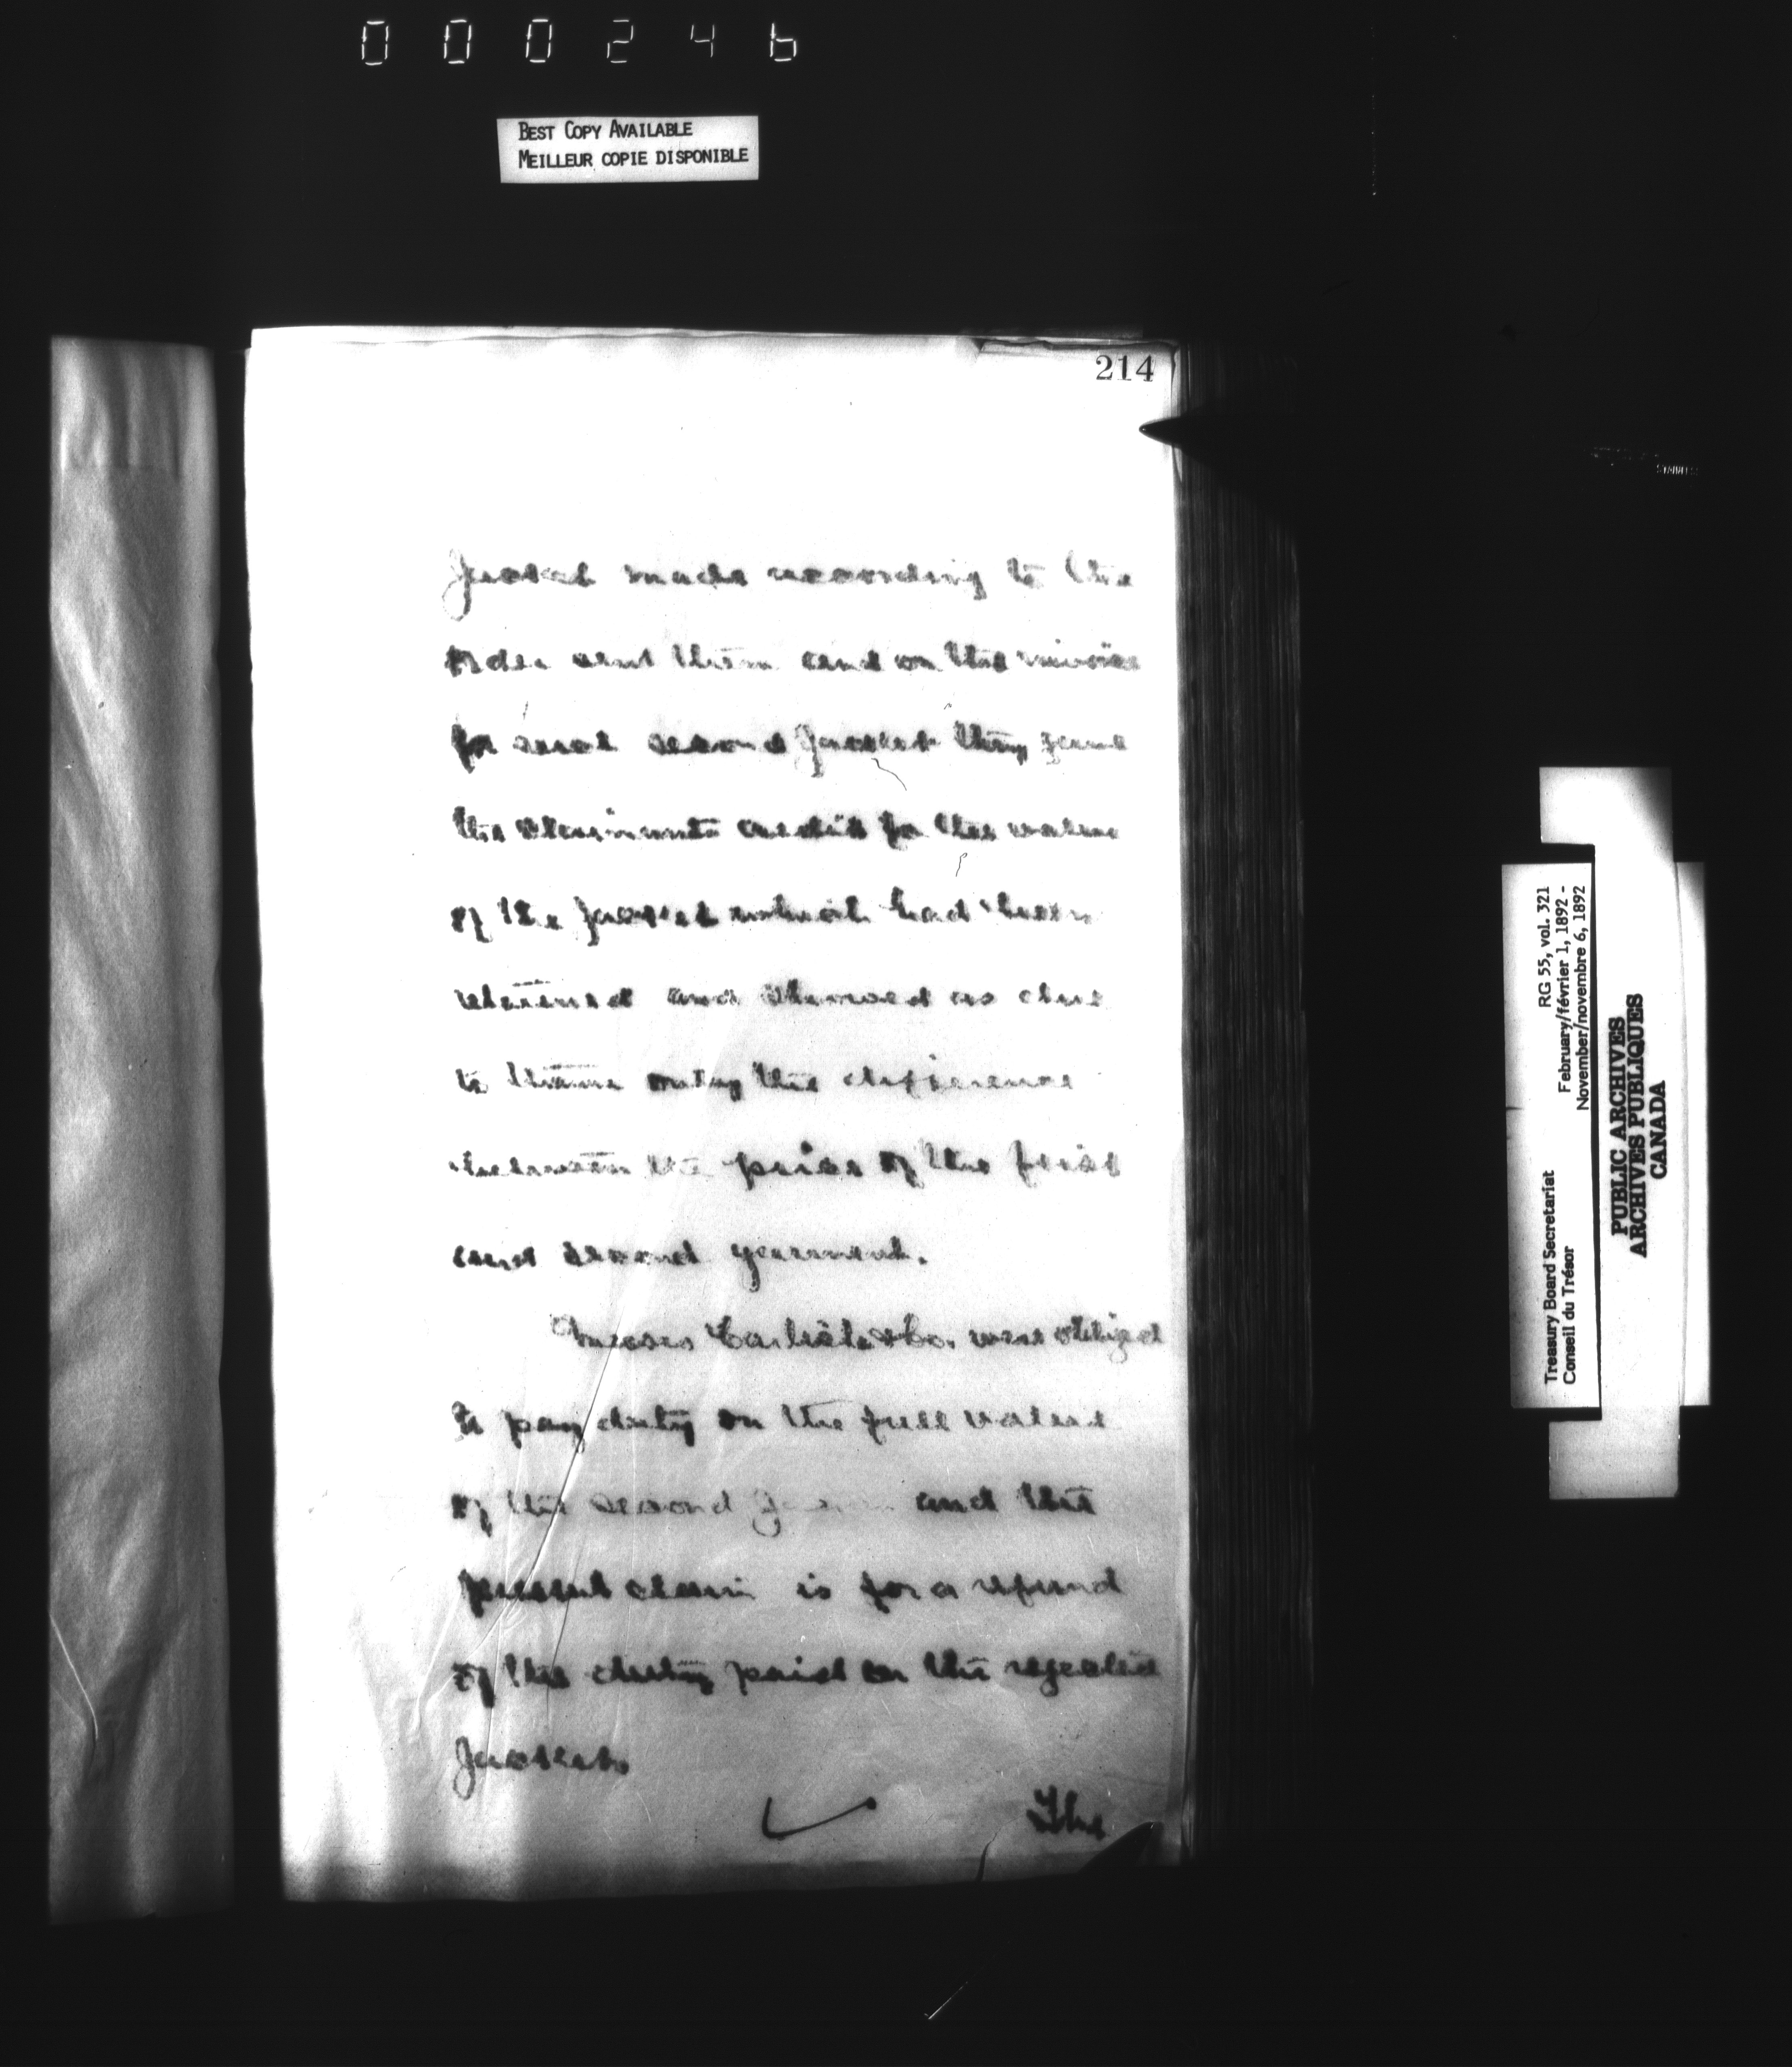 000246
BEST COPY AVAILABLE
MEILLEUR COPIE DISPONIBLE
214
Jacket made according to the
order sent them and on the invoice
for said second Jacket they gave
the claimants credit for the value
of the Jacket which had been
returned and showed as due
to them only the difference
between the price of the first
and second garment.
Messrs & Co. were obliged
to pay duty on the full value
of the second and the
present claim is for a refund
of the duty paid on the rejected
Jackets
The
Treasury Board Secretariat RG 55, vol. 321
Conseil du Trésor February/février 1, 1892 -
November/novembre 6, 1892
PUBLIC ARCHIVES
ARCHIVES PUBLIQUES
CANADA